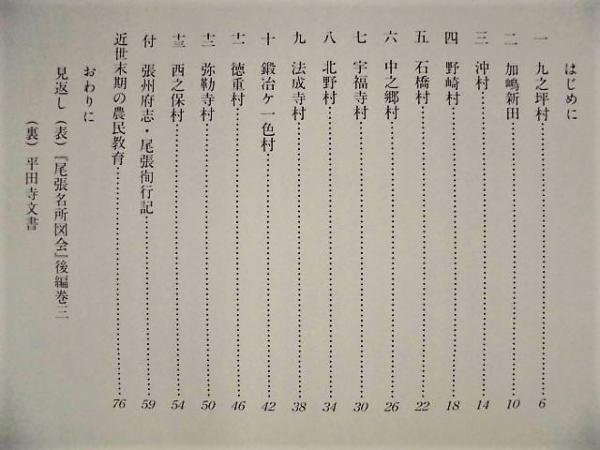 はじめに
一　九之坪村……6
二　加嶋新田……10
三　沖村……14
四　野崎村……18
五　石橋村……22
六　中之郷村……26
七　宇福寺村……30
八　北野村……34
九　法成寺村……38
十　鍛冶ケ一色村……42
十一　徳重村……46
十二　弥勒寺村……50
十三　西之保村……54
付　張州府志・尾張徇行記……59
近世末期の農民教育……76
おわりに
見返し（表）『尾張名所図会』後編巻三
（裏）平田寺文書